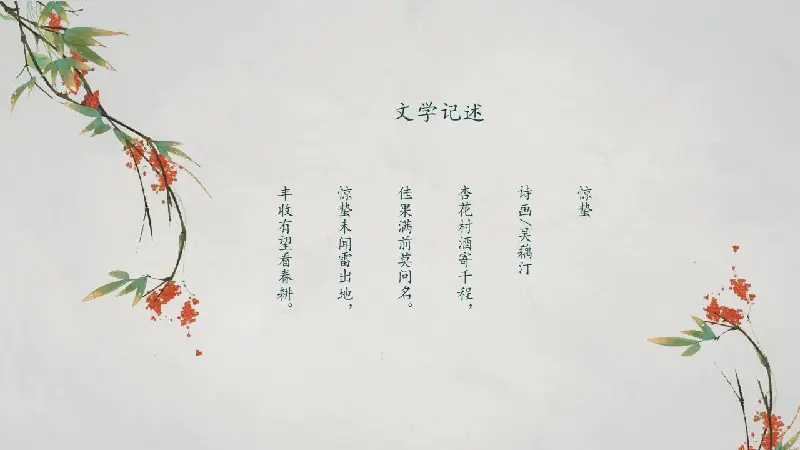 文学记述
惊蛰
诗画/吴藕汀
杏花村酒寄千程，
佳果满前莫问名。
惊蛰未闻雷出地，
丰收有望看春耕。